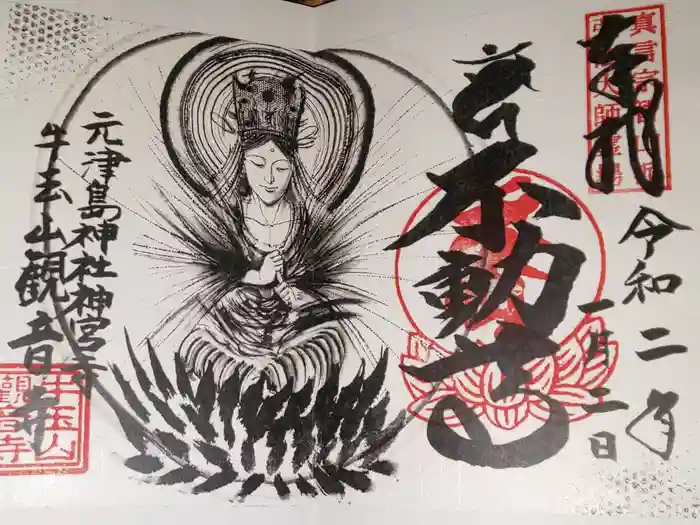 奉拝
真言宗智山派
弘法大師霊場
令和二年
一月三日
不動
元津島神社神宮寺
牛玉山観音寺
牛玉山
観音寺